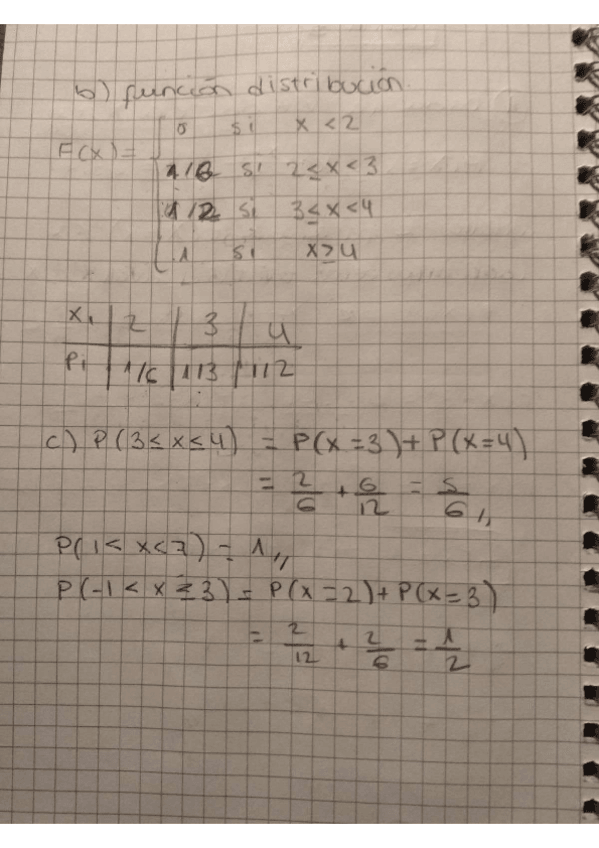 b) función distribución.
F(x) = { 0 si x < 2
1/6 si 2 ≤ x < 3
1/2 si 3 ≤ x < 4
1 si x ≥ 4
xᵢ | 2 | 3 | 4
pᵢ | 1/6 | 1/3 | 1/2
c) P(3 ≤ x ≤ 4) = P(x = 3) + P(x = 4)
= 2/6 + 6/12 = 5/6 ,,
P(1 < x < 7) = 1 ,,
P(-1 < x ≤ 3) = P(x = 2) + P(x = 3)
= 2/12 + 2/6 = 1/2